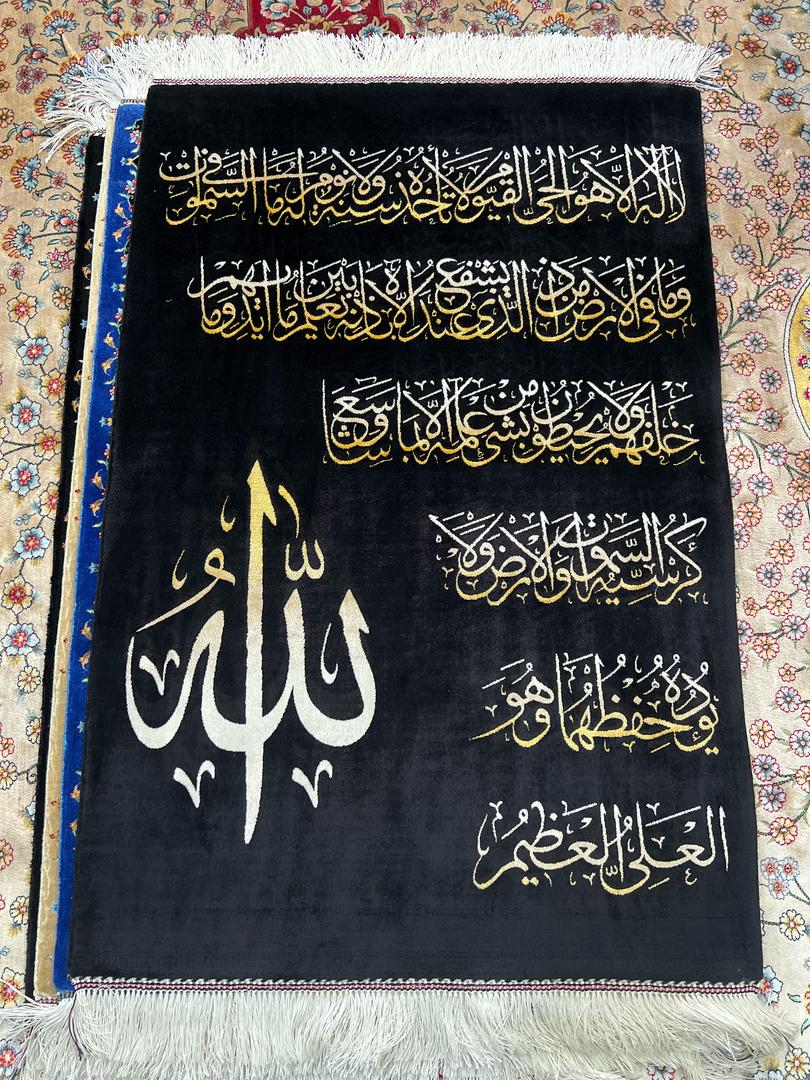 لا اله الا هو الحي القيوم لا تأخذه سنة ولا نوم له ما في السموات
وما في الارض من ذا الذي يشفع عنده الا باذنه يعلم ما بين ايديهم وما
خلفهم ولا يحيطون بشئ من علمه الا بما شاء وسع
كرسيه السموات والارض ولا
يؤده حفظهما وهو
العلي العظيم
الله